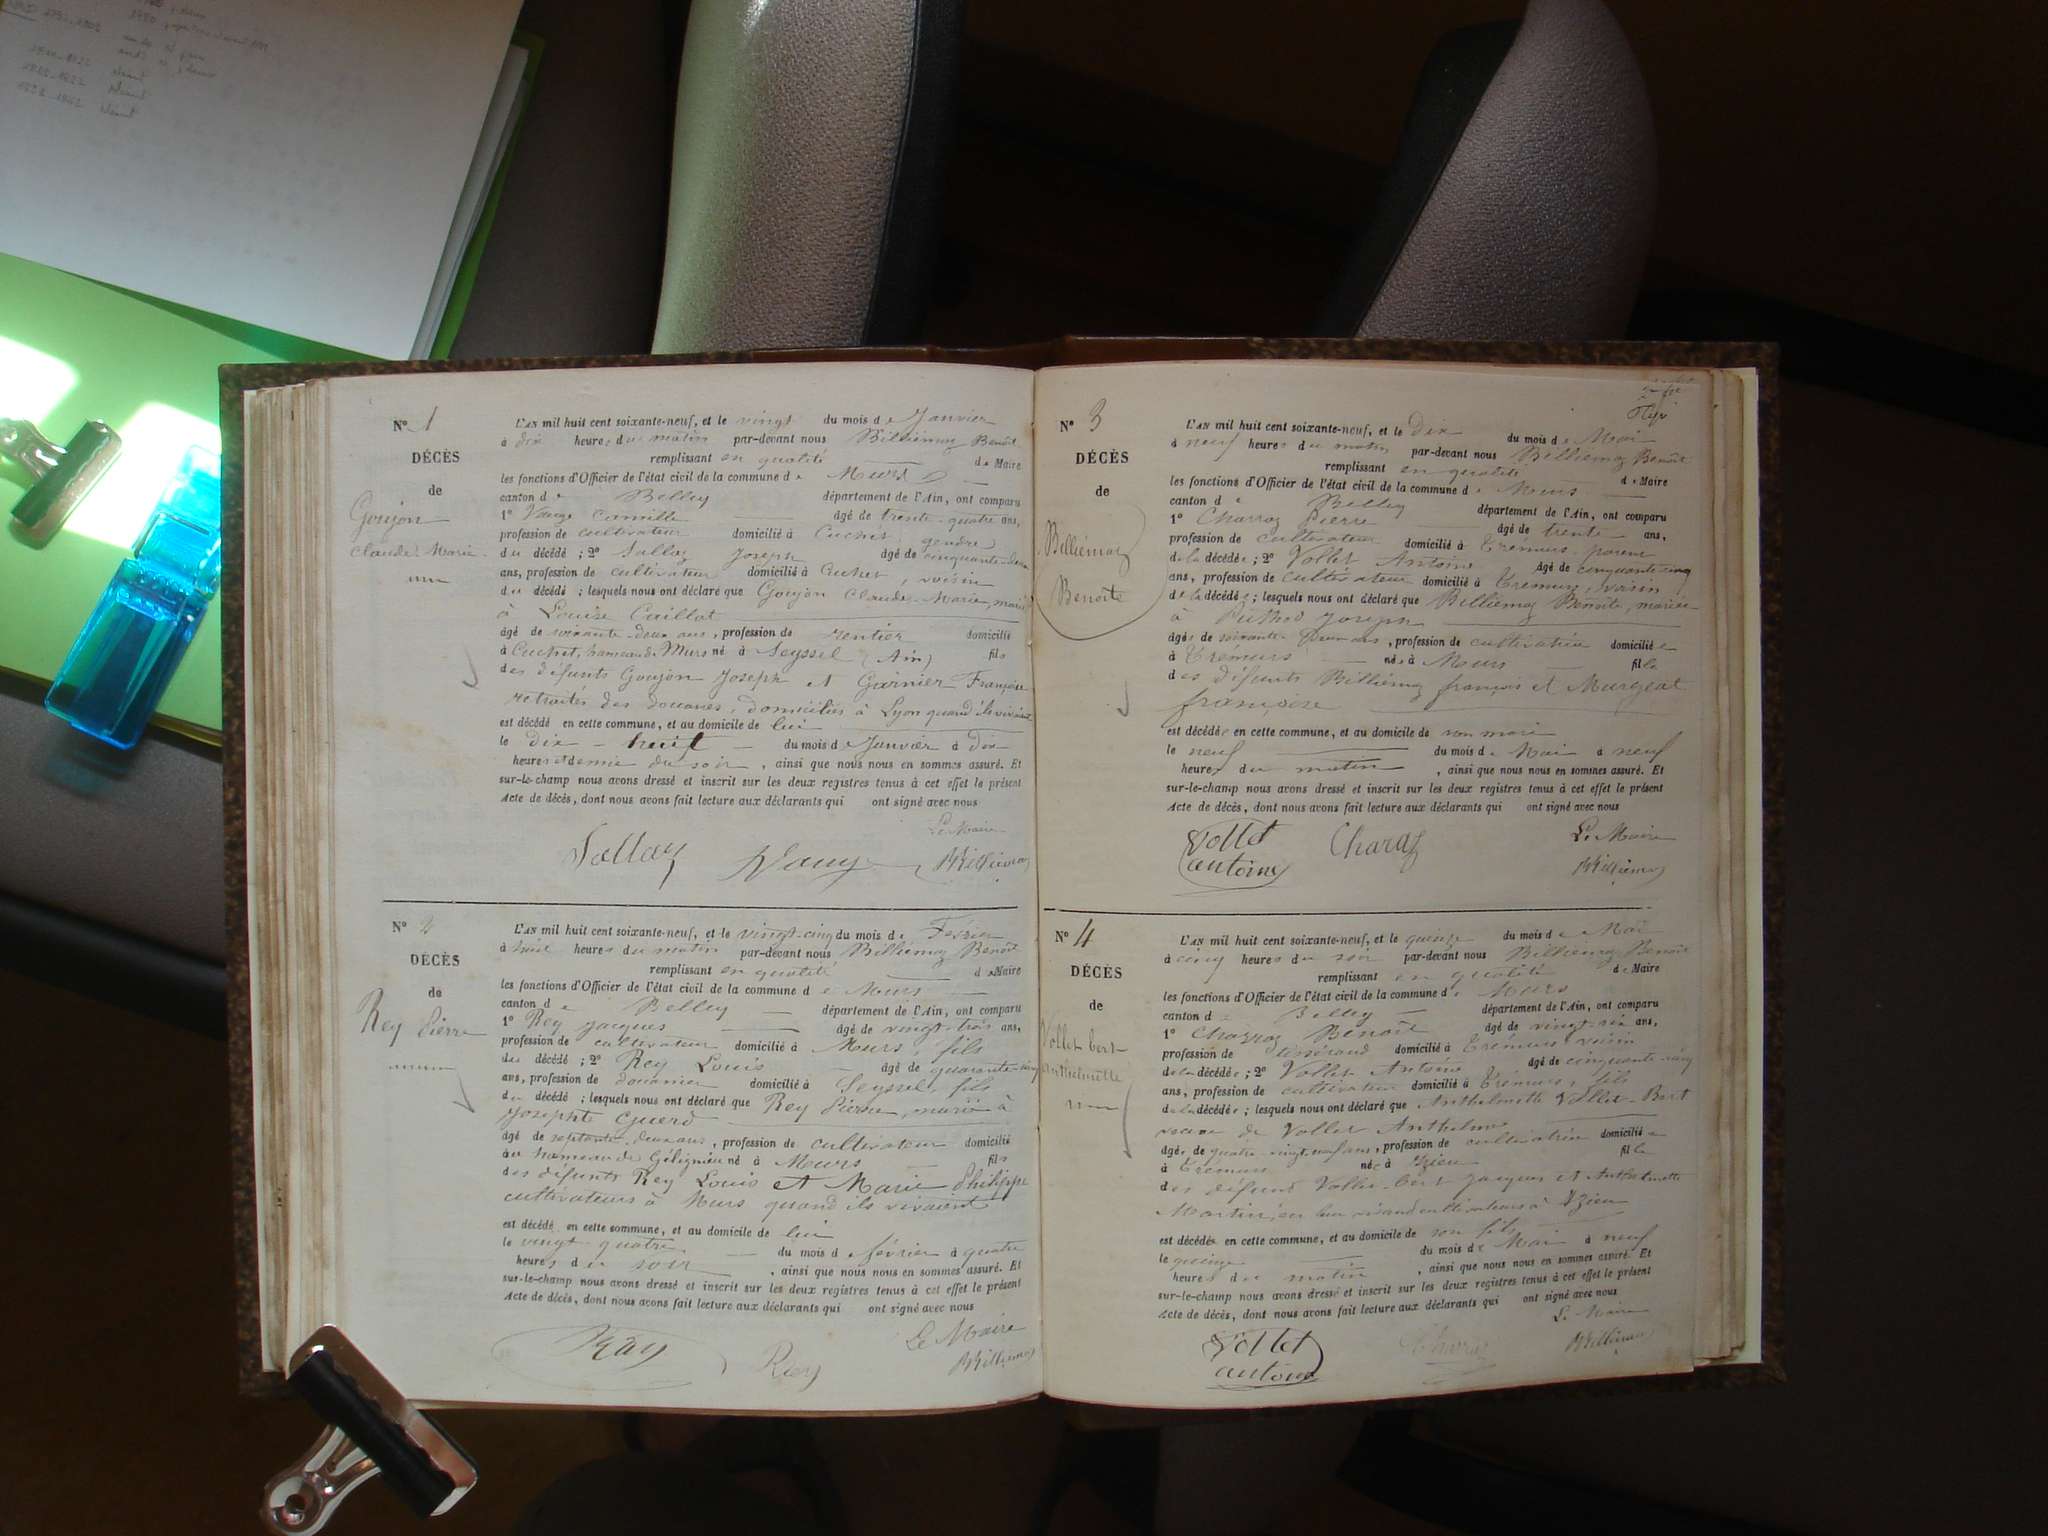 N° 1
DÉCÈS
de
Goujon
Claude-Marie
L'AN mil huit cent soixante-neuf, et le vingt du mois de Janvier
à dix heures du matin par-devant nous Billiémaz Benoît
remplissant en qualité de Maire
les fonctions d'Officier de l'état civil de la commune de Murs
canton de Belley département de l'Ain, ont comparu
1° Camille âgé de trente-quatre ans,
profession de cultivateur domicilié à Cuchet gendre
du décédé ; 2° Sallaz Joseph âgé de cinquante-deux
ans, profession de cultivateur domicilié à Cuchet, voisin
du décédé ; lesquels nous ont déclaré que Goujon Claude-Marie, marié
à Louise Caillot
âgé de soixante-deux ans, profession de rentier domicilié
à Cuchet, hameau de Murs né à Seyssel (Ain) fils
des défunts Goujon Joseph et Garnier Françoise
retraités des douanes, domiciliés à Lyon quand ils vivaient
est décédé en cette commune, et au domicile de lui
le dix-huit du mois de Janvier à dix
heures et demie du soir, ainsi que nous nous en sommes assuré. Et
sur-le-champ nous avons dressé et inscrit sur les deux registres tenus à cet effet le présent
acte de décès, dont nous avons fait lecture aux déclarants qui ont signé avec nous
Le Maire
Sallaz Billiémaz
N° 2
DÉCÈS
de
Rey Pierre
L'AN mil huit cent soixante-neuf, et le vingt-cinq du mois de Février
à huit heures du matin par-devant nous Billiémaz Benoît
remplissant en qualité de Maire
les fonctions d'Officier de l'état civil de la commune de Murs
canton de Belley département de l'Ain, ont comparu
1° Rey Jacques âgé de vingt-trois ans,
profession de cultivateur domicilié à Murs, fils
du décédé ; 2° Rey Louis âgé de quarante-cinq
ans, profession de douanier domicilié à Seyssel, fils
du décédé ; lesquels nous ont déclaré que Rey Pierre, marié à
Josephte Guerd
âgé de septante-deux ans, profession de cultivateur domicilié
au hameau de Gélignieu né à Murs fils
des défunts Rey Louis et Marie Philippe
cultivateurs à Murs quand ils vivaient
est décédé en cette commune, et au domicile de lui
le vingt-quatre du mois de février à quatre
heures du soir, ainsi que nous nous en sommes assuré. Et
sur-le-champ nous avons dressé et inscrit sur les deux registres tenus à cet effet le présent
acte de décès, dont nous avons fait lecture aux déclarants qui ont signé avec nous
Le Maire
Rey Billiémaz
N° 3
DÉCÈS
de
Billiémaz
Benoîte
L'AN mil huit cent soixante-neuf, et le dix du mois de Mai
à neuf heures du matin par-devant nous Billiémaz Benoît
remplissant en qualité de Maire
les fonctions d'Officier de l'état civil de la commune de Murs
canton de Belley département de l'Ain, ont comparu
1° Charraz Pierre âgé de trente ans,
profession de cultivateur domicilié à Trémurs parent
de la décédée ; 2° Vollet Antoine âgé de cinquante-cinq
ans, profession de cultivateur domicilié à Trémurs, voisin
de la décédée ; lesquels nous ont déclaré que Billiémaz Benoîte, mariée
à Puthod Joseph
âgée de soixante-deux ans, profession de cultivatrice domiciliée
à Trémurs née à Murs fille
des défunts Billiémaz françois et Murgeat
françoise
est décédée en cette commune, et au domicile de son mari
le neuf du mois de Mai à neuf
heures du matin, ainsi que nous nous en sommes assuré. Et
sur-le-champ nous avons dressé et inscrit sur les deux registres tenus à cet effet le présent
acte de décès, dont nous avons fait lecture aux déclarants qui ont signé avec nous
Le Maire
Vollet antoine Charaz Billiémaz
N° 4
DÉCÈS
de
Vollet bert
anthelmette
L'AN mil huit cent soixante-neuf, et le quinze du mois de Mai
à cinq heures du soir par-devant nous Billiémaz Benoît
remplissant en qualité de Maire
les fonctions d'Officier de l'état civil de la commune de Murs
canton de Belley département de l'Ain, ont comparu
1° Charraz Benoît âgé de vingt-six ans,
profession de tisserand domicilié à Trémurs voisin
de la décédée ; 2° Vollet Antoine âgé de cinquante-cinq
ans, profession de cultivateur domicilié à Trémurs, fils
de la décédée ; lesquels nous ont déclaré que Anthelmette Vollet-Bert
veuve de Vollet Anthelme
âgée de quatre-vingt-neuf ans, profession de cultivatrice domiciliée
à Trémurs née à Izieu fille
des défunts Vollet-bert Jacques et Anthelmette
Martin, en leur vivant cultivateurs à Izieu
est décédée en cette commune, et au domicile de son fils
le quinze du mois de Mai à neuf
heures du matin, ainsi que nous nous en sommes assuré. Et
sur-le-champ nous avons dressé et inscrit sur les deux registres tenus à cet effet le présent
acte de décès, dont nous avons fait lecture aux déclarants qui ont signé avec nous
Le Maire
Vollet antoine Charraz Billiémaz